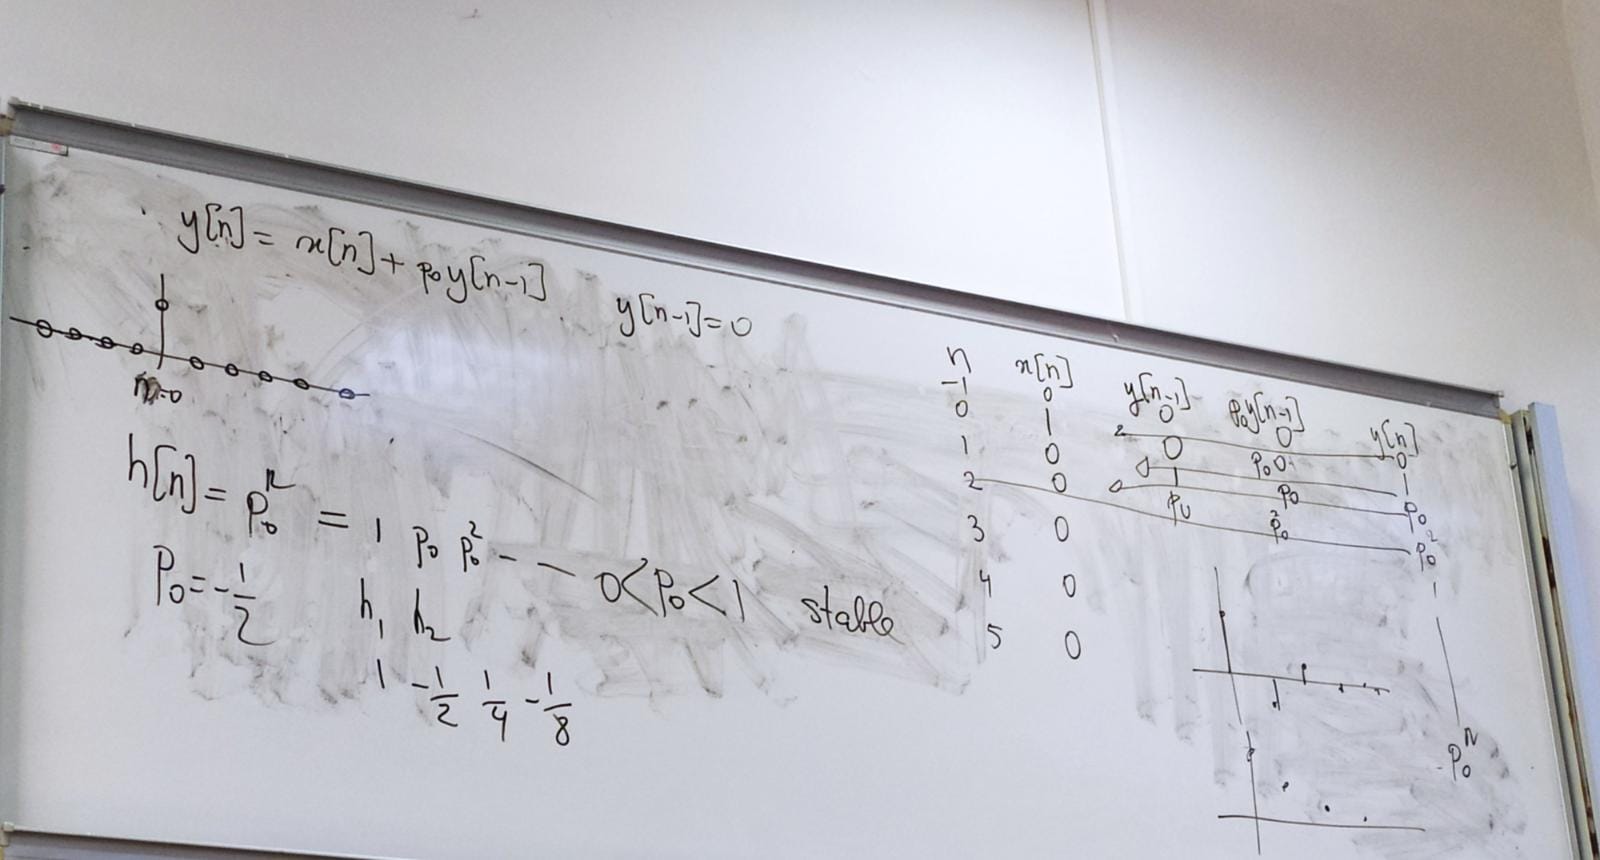 y[n] = x[n] + p₀y[n-1]
y[n-1] = 0
n=0
h[n] = p₀ⁿ = 1 p₀ p₀² - -
0 < p₀ < 1 stable
p₀ = -1/2
h₁ h₂
1 -1/2 1/4 -1/8
n x[n] y[n-1] p₀y[n-1] y[n]
-1 0 0 0 0
0 1 0 p₀0 1
1 0 1 p₀ p₀
2 0 p₀ p₀² p₀²
3 0
4 0
5 0
p₀ⁿ